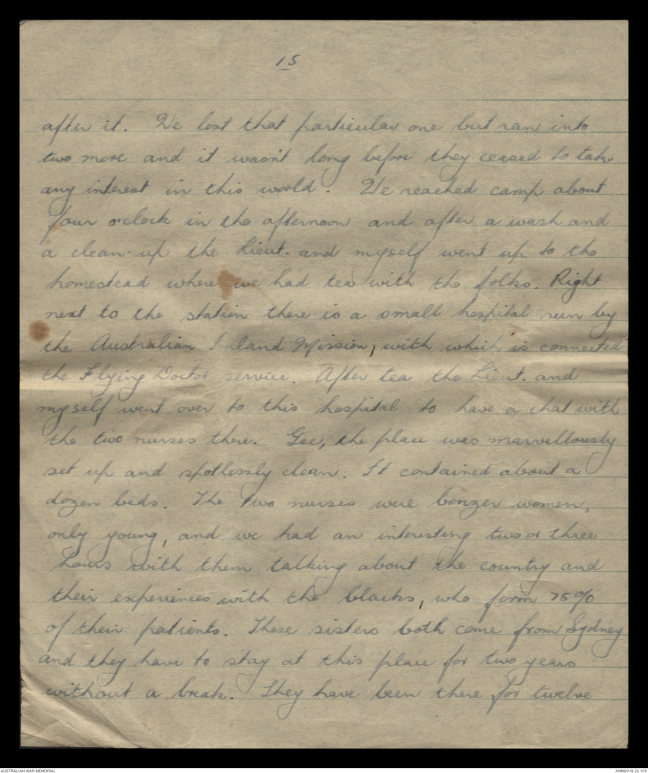 15
after it. We lost that particular one but ran into
two more and it wasn't long before they ceased to take
any interest in this world. We reached camp about
four o'clock in the afternoon and after a wash and
a clean-up the Lieut. and myself went up to the
homestead where we had tea with the folks. Right
next to the station there is a small hospital run by
the Australian Inland Mission, with which is connected
the Flying Doctor service. After tea the Lieut. and
myself went over to this hospital to have a chat with
the two nurses there. Gee, the place was marvellously
set up and spotlessly clean. It contained about a
dozen beds. The two nurses were bonzer women,
only young, and we had an interesting two or three
hours with them talking about the country and
their experiences with the blacks, who form 75%
of their patients. These sisters both come from Sydney
and they have to stay at this place for two years
without a break. They have been there for twelve
AUSTRALIAN WAR MEMORIAL